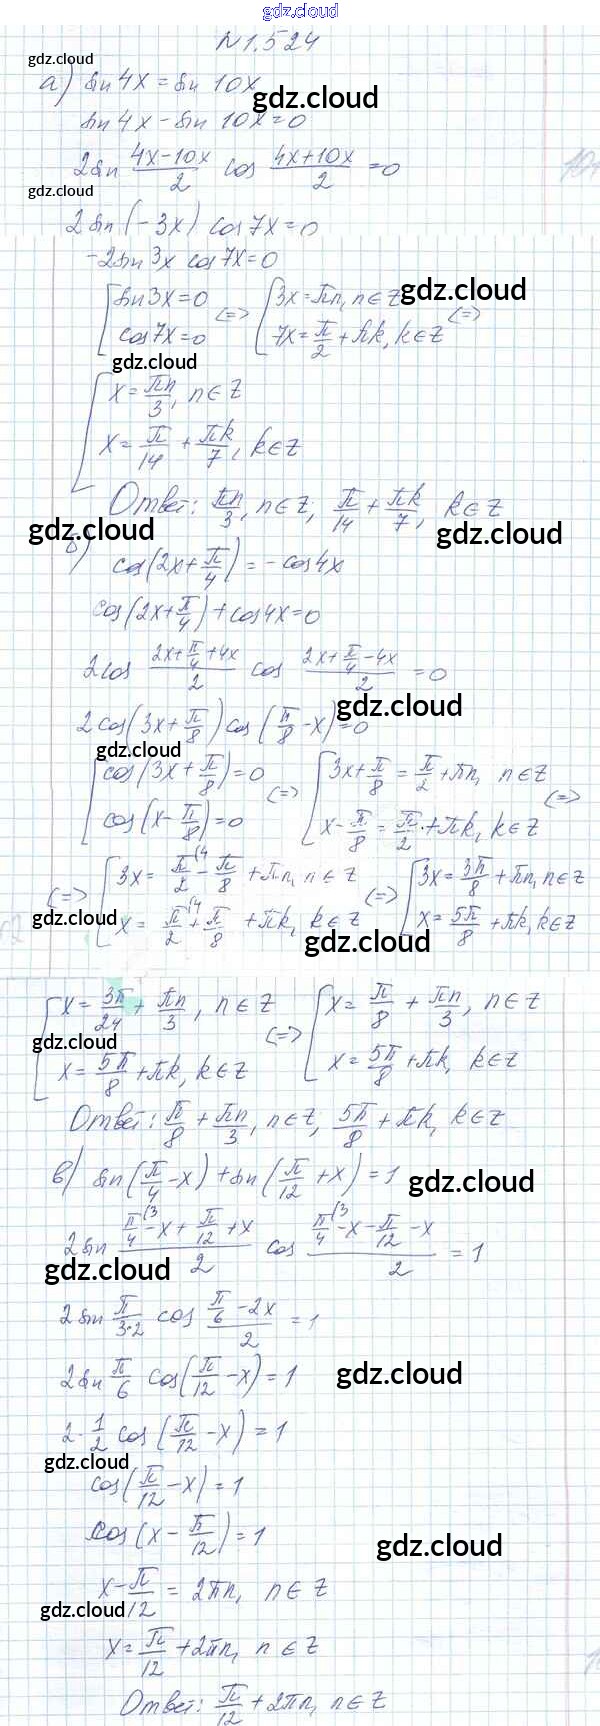 gdz.cloud
N1.524
gdz.cloud
а) sin 4x = sin 10x
gdz.cloud
sin 4x - sin 10x = 0
2 sin (4x-10x)/2 cos (4x+10x)/2 = 0
gdz.cloud
2 sin (-3x) cos 7x = 0
-2 sin 3x cos 7x = 0
[ sin 3x = 0 <=> [ 3x = πn, n ∈ Z
gdz.cloud
cos 7x = 0 7x = π/2 + πk, k ∈ Z <=>
gdz.cloud
[ x = πn/3, n ∈ Z
x = π/14 + πk/7, k ∈ Z
Ответ: πn/3, n ∈ Z, π/14 + πk/7, k ∈ Z
gdz.cloud
gdz.cloud
б) cos(2x + π/4) = -cos 4x
cos(2x + π/4) + cos 4x = 0
2 cos (2x + π/4 + 4x)/2 cos (2x + π/4 - 4x)/2 = 0
gdz.cloud
2 cos(3x + π/8) cos(π/8 - x) = 0
gdz.cloud
[ cos(3x + π/8) = 0 <=> [ 3x + π/8 = π/2 + πn, n ∈ Z
cos(x - π/8) = 0 x - π/8 = π/2 + πk, k ∈ Z <=>
<=> [ 3x = π/2 (4 - π/8 + πn, n ∈ Z <=> [ 3x = 3π/8 + πn, n ∈ Z
gdz.cloud
x = π/2 (4 + π/8 + πk, k ∈ Z x = 5π/8 + πk, k ∈ Z
gdz.cloud
[ x = 3π/24 + πn/3, n ∈ Z <=> [ x = π/8 + πn/3, n ∈ Z
gdz.cloud
x = 5π/8 + πk, k ∈ Z x = 5π/8 + πk, k ∈ Z
Ответ: π/8 + πn/3, n ∈ Z, 5π/8 + πk, k ∈ Z
в) sin(π/4 - x) + sin(π/12 + x) = 1
gdz.cloud
2 sin (π/4 (3 - x + π/12 + x)/2 cos (π/4 (3 - x - π/12 - x)/2 = 1
gdz.cloud
2 sin π/3·2 cos (π/6 - 2x)/2 = 1
2 sin π/6 cos(π/12 - x) = 1
gdz.cloud
2 · 1/2 cos(π/12 - x) = 1
gdz.cloud
cos(π/12 - x) = 1
cos(x - π/12) = 1
gdz.cloud
x - π/12 = 2πn, n ∈ Z
gdz.cloud
x = π/12 + 2πn, n ∈ Z
Ответ: π/12 + 2πn, n ∈ Z